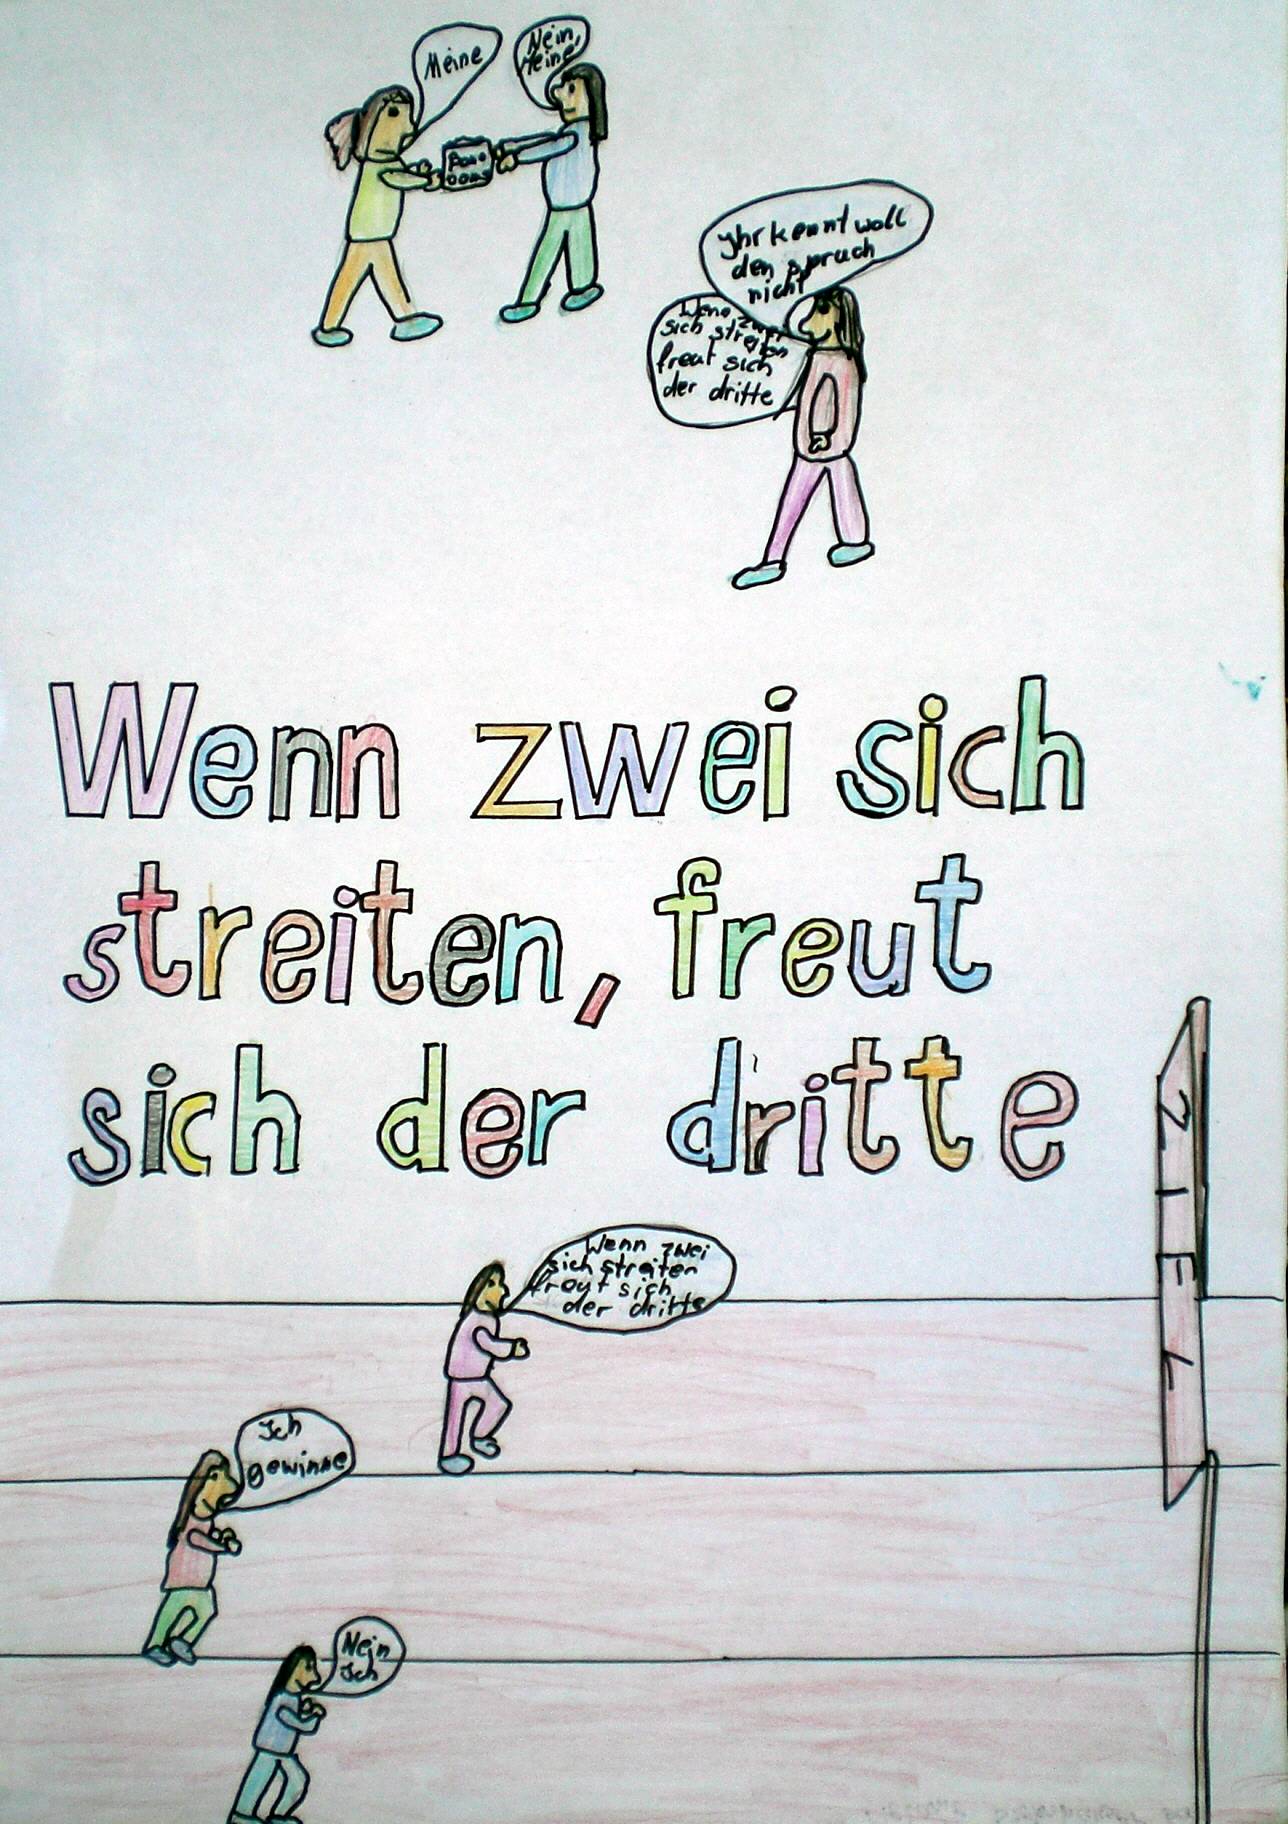 Meine
Nein,
Meine!
Bon-
bons
Yhr kennt woll
den spruch
nicht
Wenn zwei
sich streiten
freut sich
der dritte
Wenn zwei sich
streiten, freut
sich der dritte
ZIEL
Wenn zwei
sich streiten
freut sich
der dritte
Ich
gewinne
Nein
Ich